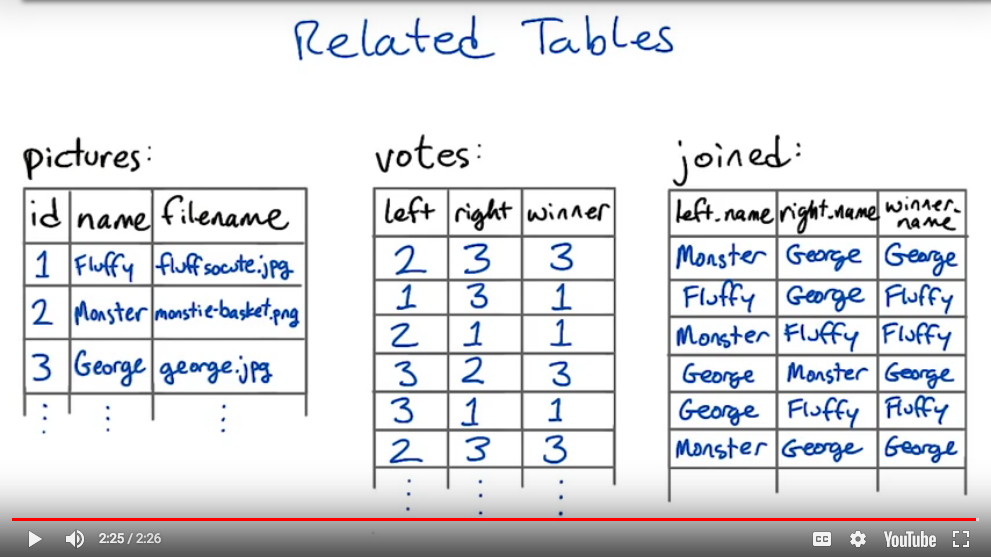 Related Tables
pictures:
id name filename
1 Fluffy fluffsocute.jpg
2 Monster monstie-basket.png
3 George george.jpg
votes:
left right winner
2 3 3
1 3 1
2 1 1
3 2 3
3 1 1
2 3 3
joined:
left_name right_name winner_name
Monster George George
Fluffy George Fluffy
Monster Fluffy Fluffy
George Monster George
George Fluffy Fluffy
Monster George George
2:25 / 2:26 CC YouTube